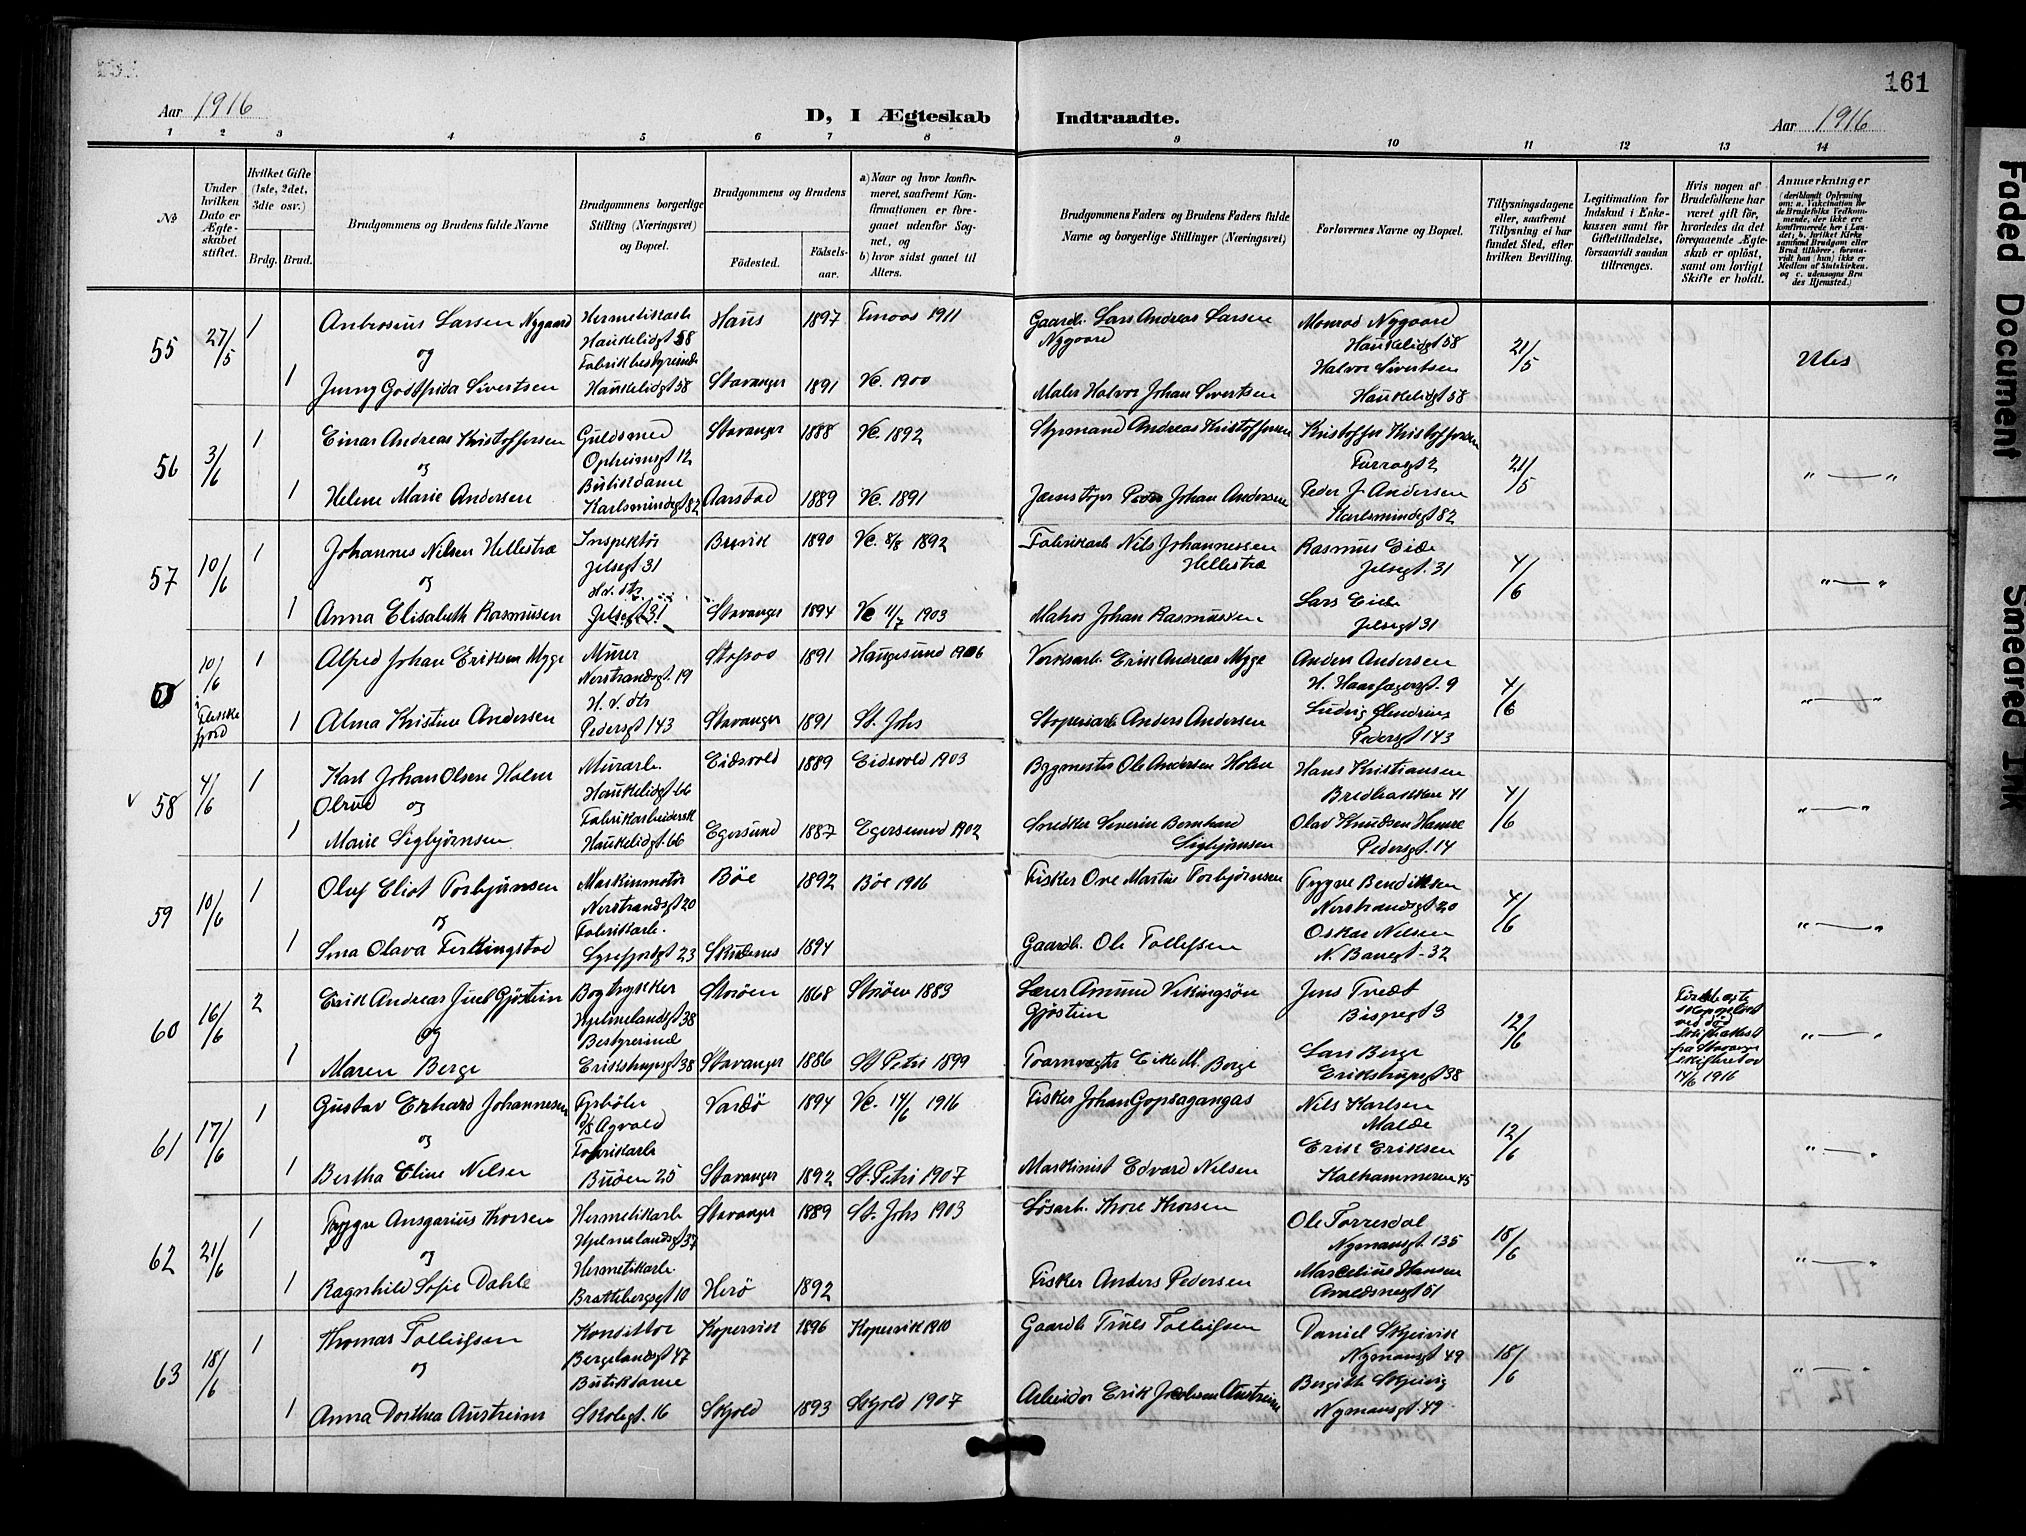 161
Aar 1916
D, I Ægteskab Indtraadte.
Aar 1916
1 2 3 4 5 6 7 8 9 10 11 12 13 14
№
Under hvilken Dato er Ægteskabet stiftet.
Hvilket Gifte (1ste, 2det, 3die osv.)
Brdg. Brud.
Brudgommens og Brudens fulde Navne
Brudgommens borgerlige Stilling (Næringsvei) og Bopæl.
Brudgommens og Brudens
Födested.
Födsels-aar.
a) Naar og hvor konfirmeret, saafremt Konfirmationen er foregaaet udenfor Sognet, og
b) hvor sidst gaaet til Alters.
Brudgommens Faders og Brudens Faders fulde Navne og borgerlige Stillinger (Næringsvei)
Forlovernes Navne og Bopæl.
Tillysningsdagene eller, saafremt Tillysning ei har fundet Sted, efter hvilken Bevilling.
Legitimation for Indskud i Enkekassen samt for Giftetilladelse, forsaavidt saadan tiltrænges.
Hvis nogen af Brudefolkene har været gift før, hvorledes da det foregaaende Ægteskab er opløst, samt om lovligt Skifte er holdt.
Anmerkninger
55 27/5 1 Ambrosius Larsen Nygaard Hermetikarb Haukelidgt 58 Haus 1897 1911 Gaardb. Lars Andreas Larsen Nygaard Monrad Nygaard Haukelidgt 58 21/5
og
1 Jenny Godtfrida Sivertsen Fabrikbestyrerinde Haukelidgt 58 Stavanger 1891 Vc. 1900 Maler Halvor Johan Sivertsen Halvor Sivertsen Haukelidgt 58
56 3/6 1 Einar Andreas Kristoffersen Guldsmed Opheimsgt 12 Stavanger 1888 Vc. 1892 Styrmand Andreas Kristoffersen Kristoffer Kristoffersen 21/5 " — "
og
1 Helene Marie Andersen Butikdame Karlsmindegt 82 Aarstad 1889 Vc. 1891 Peder Johan Andersen Peder J. Andersen Karlsmindegt 82
57 10/6 1 Johannes Nilsen Hellestræ Inspektör Jelsegt 31 1890 Vc. 8/8 1892 Fabrikarb Nils Johannessen Hellestræ Rasmus Eide Jelsegt. 31 4/6 " — "
og
1 Anna Elisabeth Rasmussen H.v. dtr Jelsegt 31 Stavanger 1894 Vc 11/7 1903 Matros Johan Rasmussen Lars Eide Jelsegt 31
10/6 i Flekkefjord 1 Alfred Johan Eriksen Myge Murer Nerstrandsgt. 19 1891 Haugesund 1906 Verksarb. Erik Andreas Myge Anders Andersen H. Haarfagersgt. 9 4/6 " — "
1 Alma Kristine Andersen H. v. dtr Pedersgt 143 Stavanger 1891 St. Johs Anders Andersen Ludvig Pedersgt 143
58 4/6 1 Karl Johan Olsen Holm Olrud Murarb. Haukelidgt 66 Eidsvold 1889 Eidsvold 1903 Bygmester Ole Andersen Holm Hans Kristiansen Bredbakken 41 4/6 " — "
og
1 Marie Sigbjørnsen Fabrikarbeiderske Haukelidgt. 66 Egersund 1887 Egersund 1902 Snedker Severin Bernhard Sigbjørnsen Olav Knudsen Hamre Pedersgt. 14
59 10/6 1 Oluf Eliot Torbjörnsen Nerstrandsgt 20 Böe 1892 Böe 1916 Fisker Ove Martin Torbjörnsen Trygve Bendiksen Nerstrandsgt 20 4/6 " — "
og
1 Sina Olava Ferkingstad Fabrikarb. Lysefjordgt 23 Skudenes 1894 Gaardb. Ole Tollefsen Oskar Nilsen N. Banegt. 32
60 16/6 2 Erik Andreas Juel Gjöstein Bogtrykker Hjelmelandsgt 38 1868 1883 Lærer Amund Vikingsön Gjöstein Jens Tvedt Bispegt 3 12/6 ved död 14/6 1916 " — "
og
1 Maren Berge Bestyrerinde Erikstrupsgt 38 Stavanger 1886 St Petri 1899 Taarnvægter Eike M. Berge Lars Berge Erikstrupsgt 38
61 17/6 1 Gustav Erhard Johannesen Fyrböter Vardö 1894 Vc. 14/6 1916 Fisker Johan Nils Karlsen Malde 12/6 " — "
og
1 Bertha Eline Nilsen Fabrikarb Buöen 25 Stavanger 1892 St. Petri 1907 Maskinist Edvard Nilsen Erik Eriksen Kalhammeren 45
62 21/6 1 Trygve Ansgarius Thorsen Hermetikarb Hjelmelandsgt 37 Stavanger 1889 St. Johs 1903 Lösarb. Thore Thorsen Ole Torresdal Nymansgt. 135 18/6 " — "
og
1 Ragnhild Sofie Dahle Hermetikarb. Brattebergsgt 10 Herö 1892 Fisker Anders Pedersen Marcelius Hansen Avaldsnesgt 51
63 18/6 1 Thomas Tolleifsen Konditor Bergelandsgt 47 Kopervik 1896 Kopervik 1910 Gaardb Truls Tolleifsen Daniel Skjeivik Nymansgt 49 18/6 " — "
og
1 Anna Dorthea Austreim Butikdame Skolegt. 16 Skjold 1893 Skjold 1907 Arbeider Erik Jacobsen Austreim Bergitte Skjeivig Nymansgt. 49
Faded Document
Smeared Ink